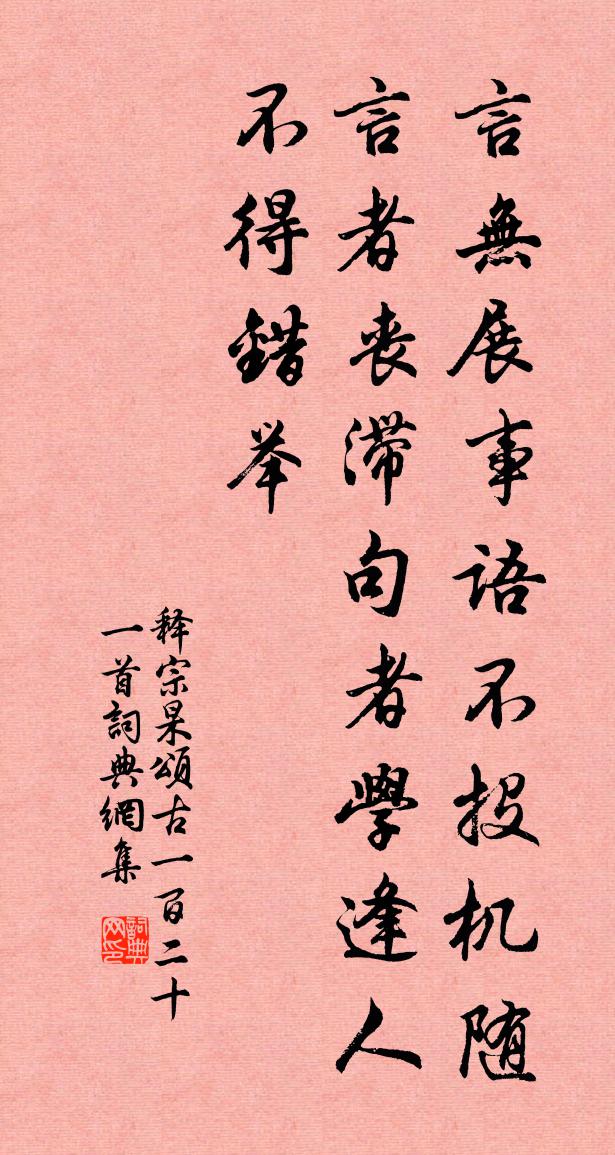 言無展事語不投机随
言者丧滞句者學逢人
不得錯举
释宗杲頌古一百二十
一首詞典網集
詞典网印